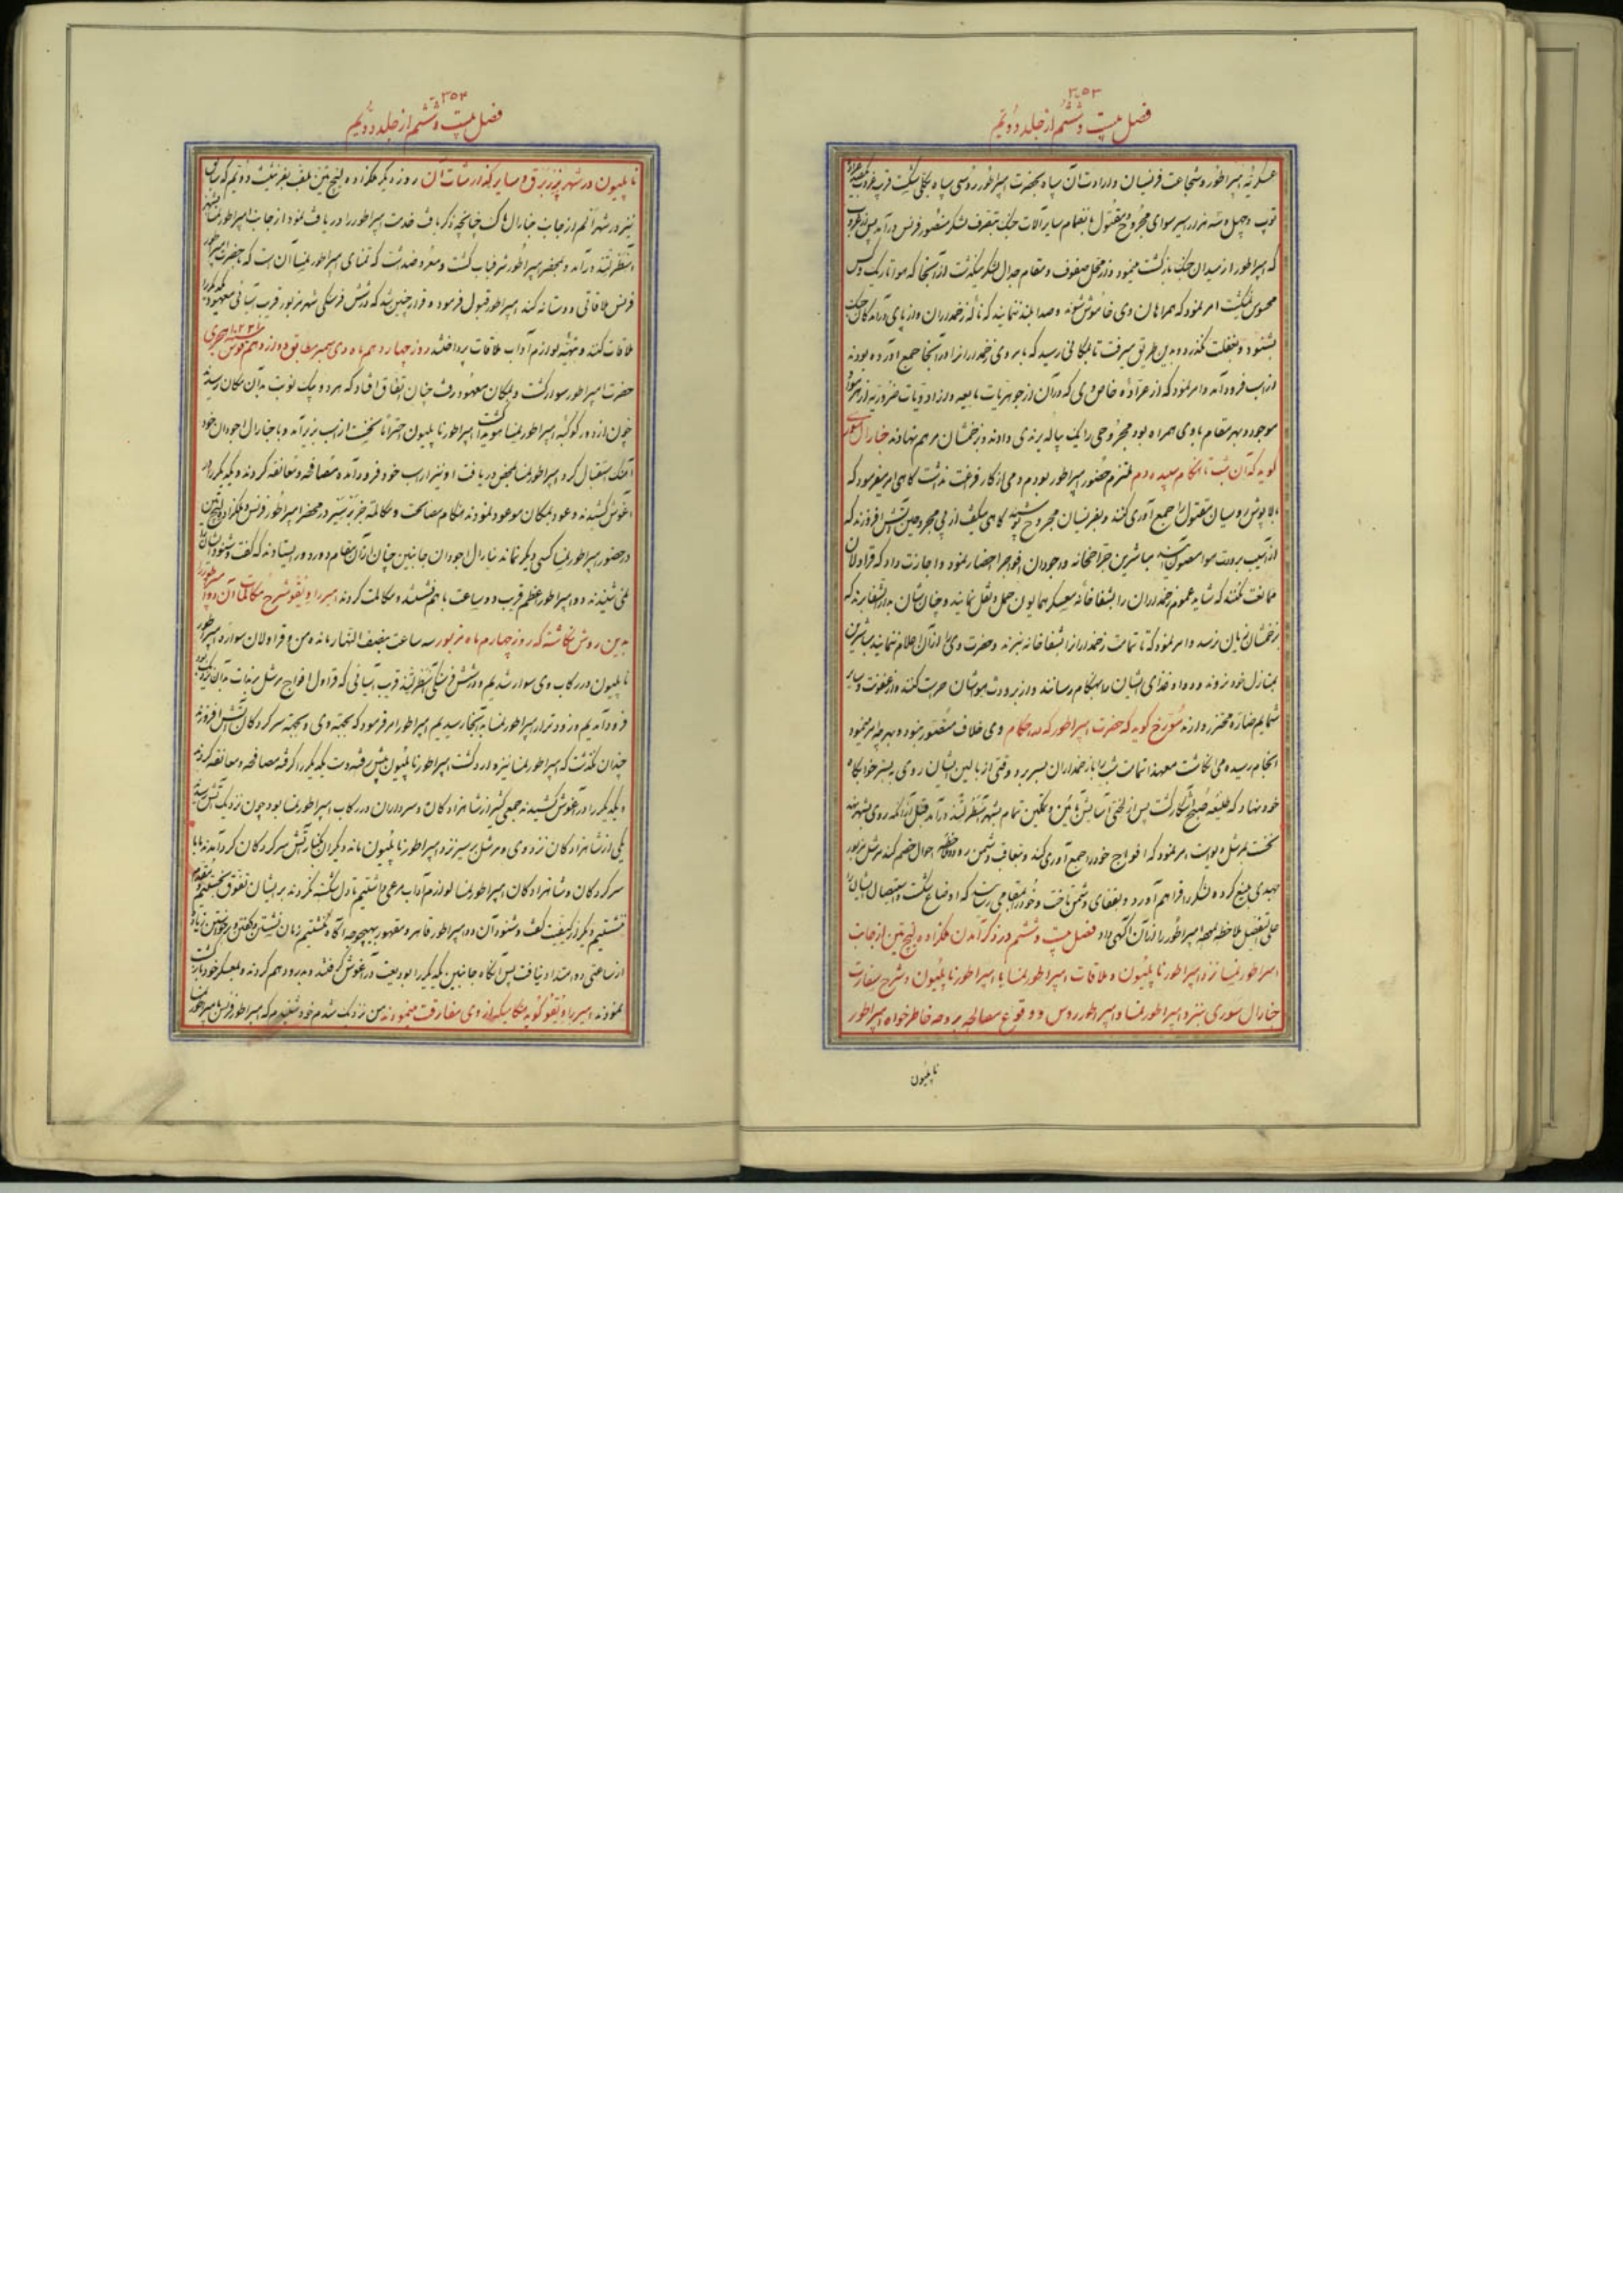 ۳۵۳
فصل بیست و ششم از جلد دویم
عسکریه امپراطور و شجاعت فرنسیان و ارادت آن سپاه بحضرت امپراطور روسی سپاه بکلی شکست قریب
توپ و چهل و سه هزار اسیر سوای مجروح و مقتول بانضمام سایر آلات جنگ بتصرف لشکر منصور فرنس درآمد پس از غروب
که امپراطور از میدان جنگ بازگشت مینمود و از محل صفوف و مقام جدال لشکر میگذشت از آنجا که هوا تاریک و کس
محسوس نمیگشت امر نمود که همراهان وی خاموش شوند و صدا بلند ننمایند که ناله زخمداران و از پای درآمدگان جنگ
بشنود و بغفلت نگذرد و بدین طریق میرفت تا بمکانی رسید که بابروی زخمدار را در آنجا جمع آورده بودند
از اسب فرود آمد و امر نمود که از عراده خاص وی که در آن از جوهریات مایعه و از ادویات ضروریه از هر
موجود و بهر مقام با وی همراه بود مجروحی را یک پیاله برندی دادند و بزخمشان مرهم نهادند جنارال سوری
گوید که آن شب تا هنگام سپیده دم ملتزم حضور امپراطور بودم دمی از کار فرغت نداشت گاهی امر میفرمود که
بالاپوش روسیان مقتول را جمع آوری کنند و بفرنسیان مجروح پوشند گاهی میگفت از پی مجروحین آتش افروزند که
از آسیب برودت هوا مصون مباشرین جراحخانه و اجودان افواج را احضار نمود و اجازت داد که قراولان
ممانعت نکنند که شاید عموم زخمداران را بشفاخانه معسکر همایون حمل و نقل نمایند و چنانشان بدار الشفا برند که
بزخمشان زیان نرسد و امر نمود که تا تمامت زخمدار را بشفاخانه نبرند و حضرت وی را از آن اعلام ننمایند مباشرین
بمنازل خود نروند و دوا و غذای ایشان را بهنگام رسانند و از برودت هواشان حراست کنند و از عفونت و سایر
شمایم ضاره محترز دارند مورخ گوید که حضرت امپراطور که احکام وی خلاف متصور نبود و بهرچه امر مینمود
انجام رسید ومی انگاشت معهذا تمامت شب را با زخمداران بسر برد و وقتی از بالین ایشان روی به بستر خوابگاه
خود نهاد که طلیعه صبح آشکار گشت پس از لختی آسایش تمام بشهر آسترلتز درآمد قبل از آنکه روی بشهر نهد
نخست مرشل داوست امر نمود که افواج خود را جمع آوری کند و بتعاقب دشمن رود احوال خصم کند مرشل مزبور
جهدی بلیغ کرده لشکر را فراهم آورد و بقفای دشمن تاخت و خود را بمقامی رسانید که اوضاع شکست و استیصال ایشان را
علی التفصیل ملاحظه امپراطور را از آن آگهی داد فصل بیست و ششم در ذکر آمدن ملکزاده لیچ تین از جانب
امپراطور نمسا نزد امپراطور ناپلیون و ملاقات امپراطور نمسا با امپراطور ناپلیون و شرح سفارت
جنارال سوری بنزد امپراطور نمسا و امپراطور روس و وقوع مصالحه بر وجه خاطرخواه امپراطور
ناپلیون
۳۵۴
فصل بیست و ششم از جلد دویم
ناپلیون در شهر پرزبرق و سایر گذارشات آن روز دیگر ملکزاده لیچ تین
نیز در شهر از جانب جنارال ماک چنانچه ذکر یافت خدمت امپراطور را دریافت نمود از جانب امپراطور نمسا بشهر
آسترلتز درآمد و بمحضر امپراطور شرفیاب گشت و معروضداشت که تمنای امپراطور نمسا آن است که با حضرت امپراطور
فرنس ملاقاتی دوستانه کند امپراطور قبول فرموده قرار چنین شد که در شش فرسنگی شهر مزبور قرب آسیائی معهود یکدیگر را
ملاقات کنند و تهیه لوازم آداب ملاقات پرداختند روز چهاردهم ماه دیسمبر مطابق دوازدهم قوس سنه ۱۲۲۰ هجری
حضرت امپراطور سوار گشت و بمکان معهود رفت چنان اتفاق افتاد که هر دو بیک نوبت بدان مکان رسیدند
چون از دور کوکبه امپراطور نمسا هویدا گشت امپراطور ناپلیون احتراماً نخست از اسب بزیر آمد و با جنارال اجودان خود
آهنگ استقبال کرد امپراطور نمسا بمحض دریافت او نیز از اسب خود فرود آمده مصافحه و معانقه کردند و یکدیگر را در
آغوش کشیدند و عود بمکان موعود نمودند هنگام مصالحت و مکالمه جز در محضر امپراطور فرنس و ملکزاده لیچ تین
در حضور امپراطور نمسا کسی دیگر نماند جنارال اجودان جانبین چنان از آن مقام دور در ایستادند که گفت و شنود
نمی شنیدند دو امپراطور اعظم قریب دو ساعت باهم نشستند و مکالمت کردند امیر راویقو شرح مکالمات آن دو امپراطور را
بدین روش نگاشته که روز چهارم ماه مزبور سه ساعت بنصف النهار مانده من و قراولان سواره امپراطور
ناپلیون در رکاب وی سوار شدیم و در شش فرسنگی آسترلتز قریب آسیائی که قراول افواج مرشل برنادت
فرود آمدیم و زودتر از امپراطور نمسا به آنجا رسیدیم امپراطور امر فرمود که بجهة وی و بجهة سرکردگان آتش افروزند
چندان نگذشت که امپراطور نمسا نیز وارد گشت امپراطور ناپلیون پیش رفته دست یکدیگر را گرفته مصافحه و معانقه کردند
و یکدیگر را در آغوش کشیدند جمعی کثیر از شاهزادگان و سرداران در رکاب امپراطور نمسا بود چون نزدیک آتش رسیدند
یکی از شاهزادگان نزد وی و مرشل برسیر نزد امپراطور ناپلیون مانده دیگران بکنار آتش سرکردگان گرد آمدند ما با
سرکردگان و شاهزادگان امپراطور نمسا لوازم آداب مرعی داشتیم تا دل شکسته نگردند بر ایشان تفوق نجستیم
ننشستیم دیگر از کیفیت گفت و شنود آن دو امپراطور قاهر و مقهور بهیچوجه آگاه نگشتیم زمان نشستن و گفتن و برخاستن زیاده
از ساعتی دو امتداد نیافت پس آنگاه جانبین یکدیگر را بودیعت در آغوش گرفتند و بدرود هم کردند و بمعسکر خود بازگشت
نمودند امیر راویقو گوید هنگامیکه از وی مفارقت مینمودند من نزدیک شدم خود شنیدم که امپراطور فرنس بامپراطور نمسا